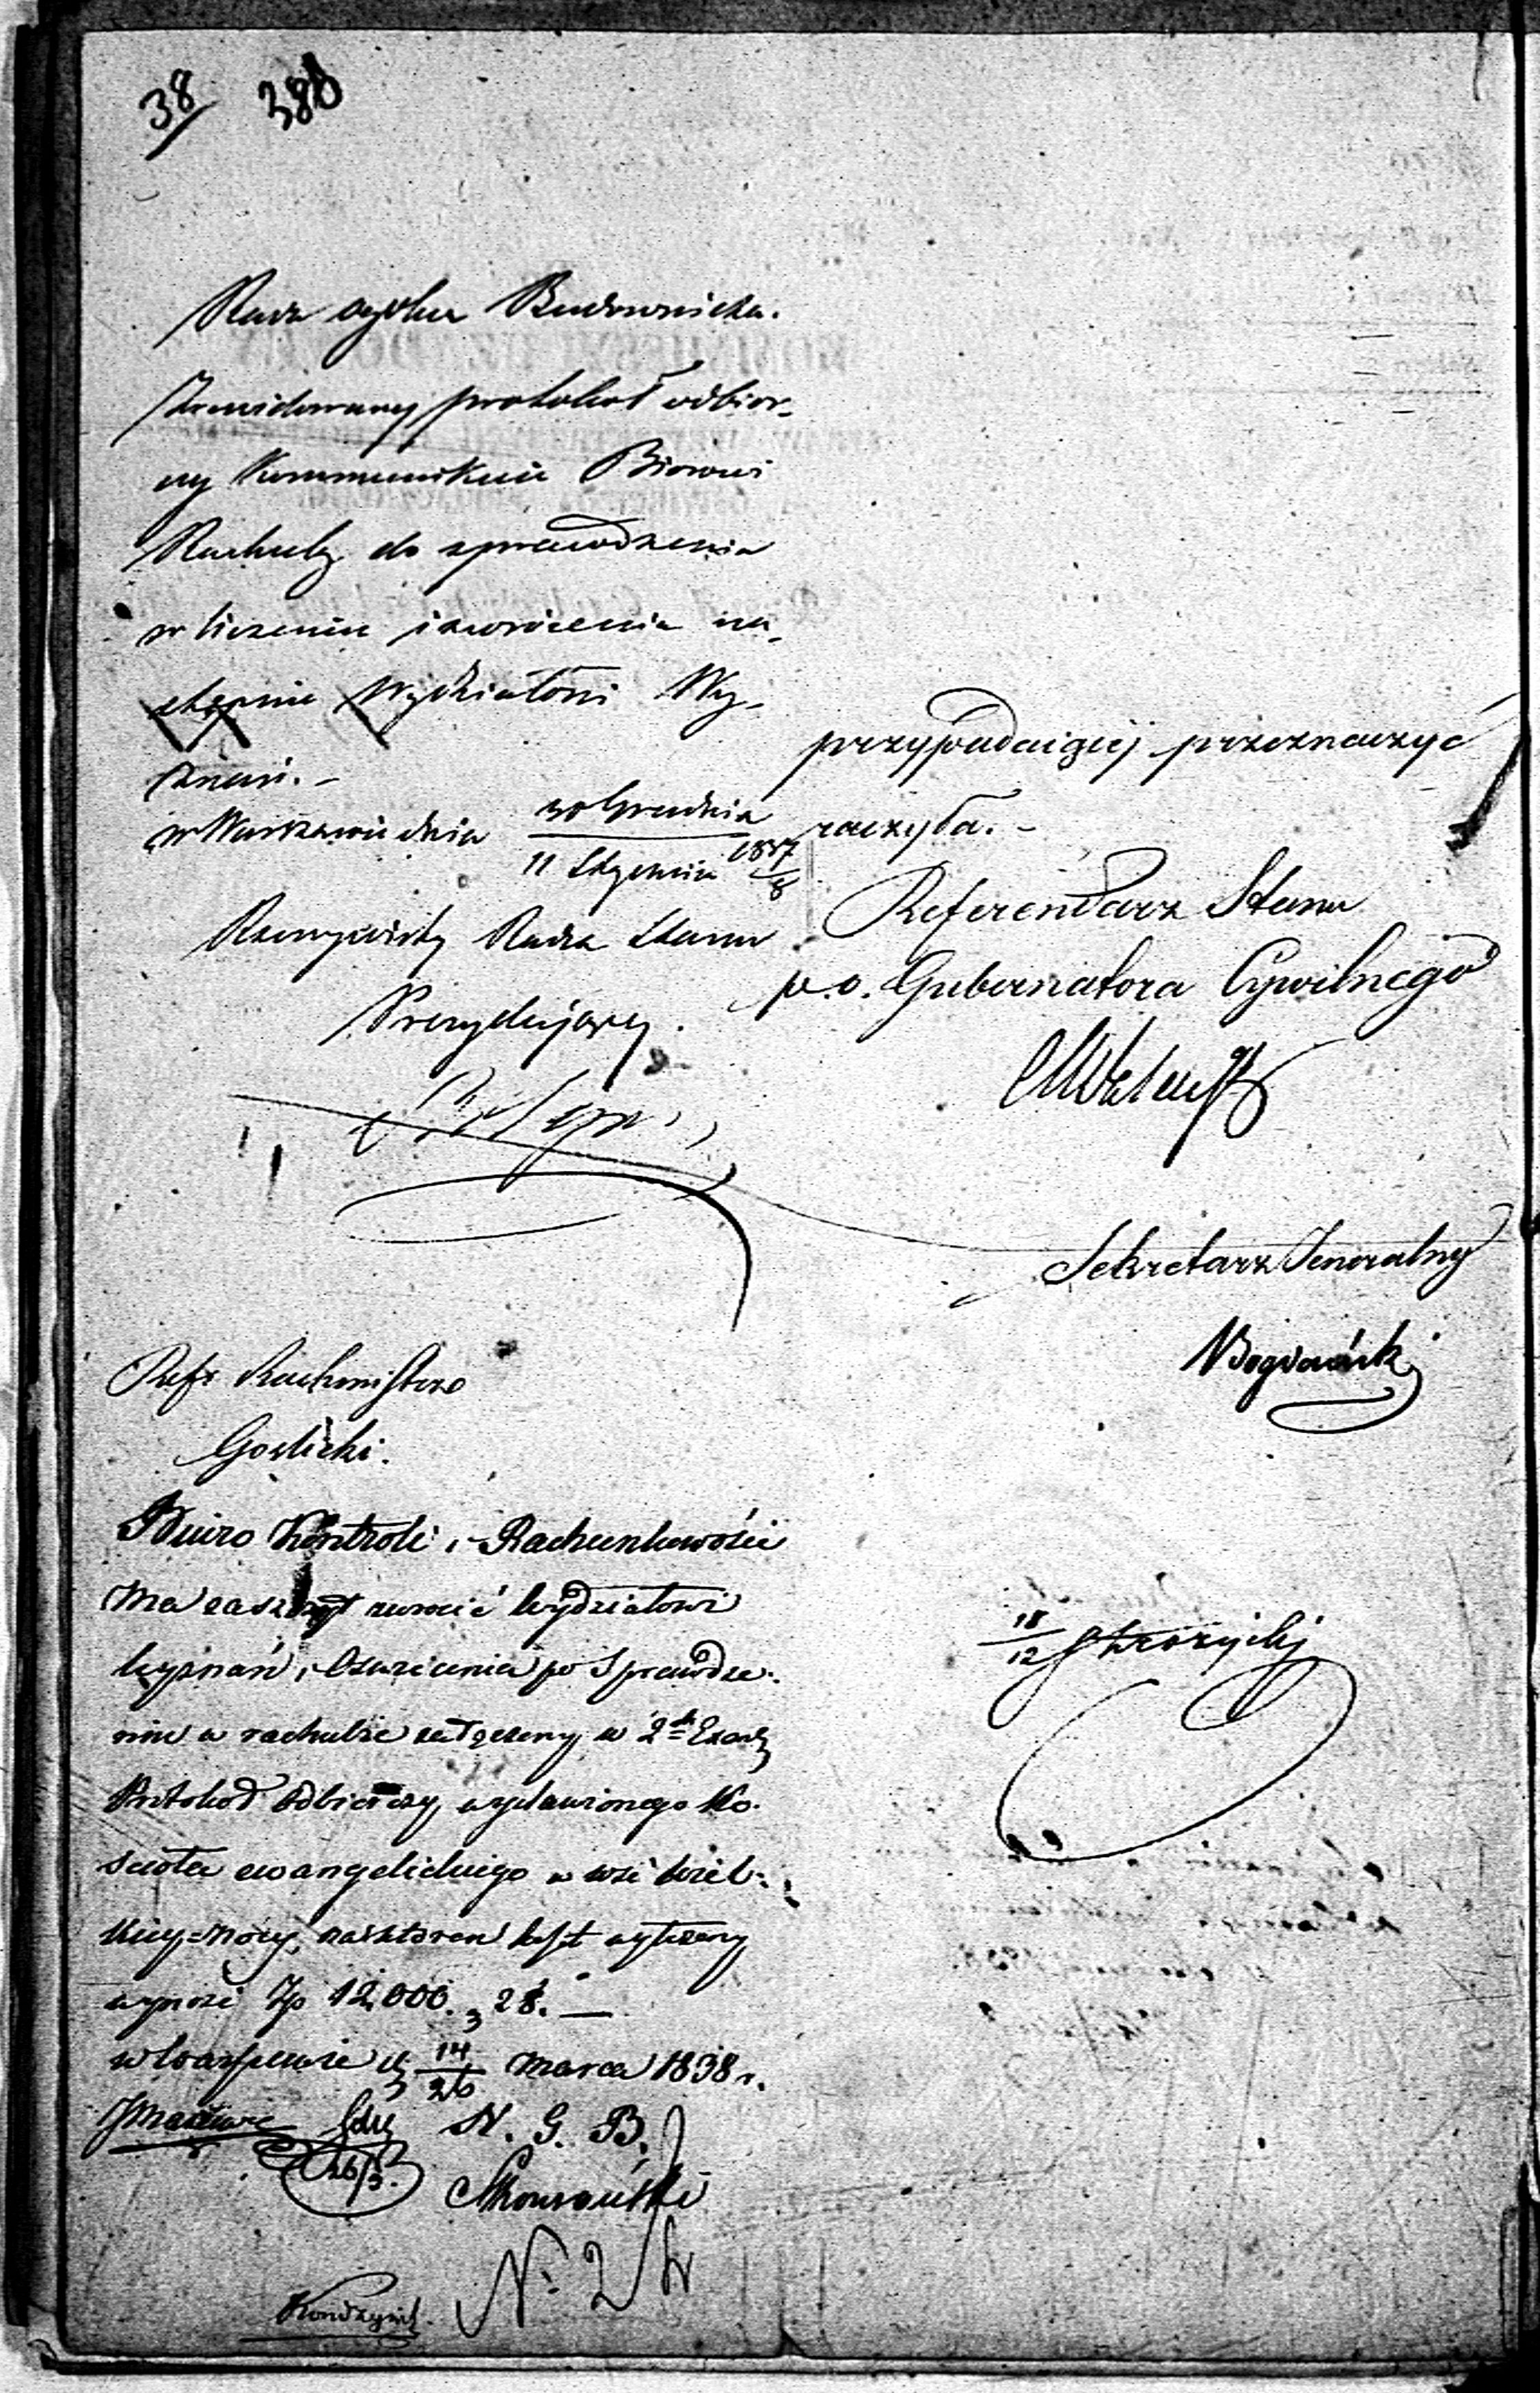 38 380
Rada ogólna Budownicza.
Zrewidowany protokół odbior-
czy Kommunikuie Biorowi
Rachuby do sprawdzenia
w liczeniu i zwrócenia na-
stępnie Wydziałowi Wy-
znań. -
w Warszawie dnia 30 Grudnia / 11 Stycznia 1837/8
Rzeczywisty Radca Stanu
Prezydujący.
przypadaiącéj przeznaczyć
raczyła. -
Referendarz Stanu
p.o. Gubernatora Cywilnego
Sekretarz Jeneralny
Refr Rachmistrz
Gorlicki.
Biuro Kontroli i Rachunkowości
ma zaszczyt zwrócić Wydziałowi
Wyznań i Oświecenia po sprawdze-
niu w rachubie załączony w 2ch Exarzy
Protokoł Odbiorczy wystawionego Ko-
scioła ewangelickiego w wsi Wiel-
kiey-nocy, na którem koszt wyłożony
wynosi Zp 12,000. 28. —
w Warszawie d 14/26 Marca 1838 r.
N. G. B.
26/3.
18/12
N: 2